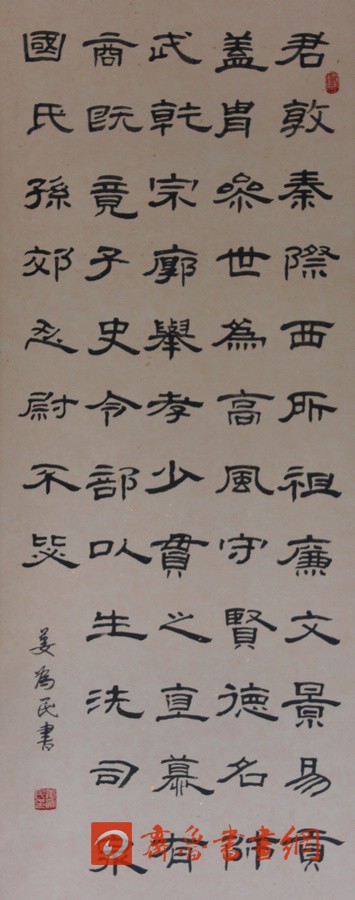 君敦秦際西所祖廉文景易貢
蓋胄叅世為高風守賢德名師
武乾宗廓舉孝少貫之直慕有
商竟子史令部以生洗司
國氏孫郊尉不毖
姜為民書
齊魯書畫網